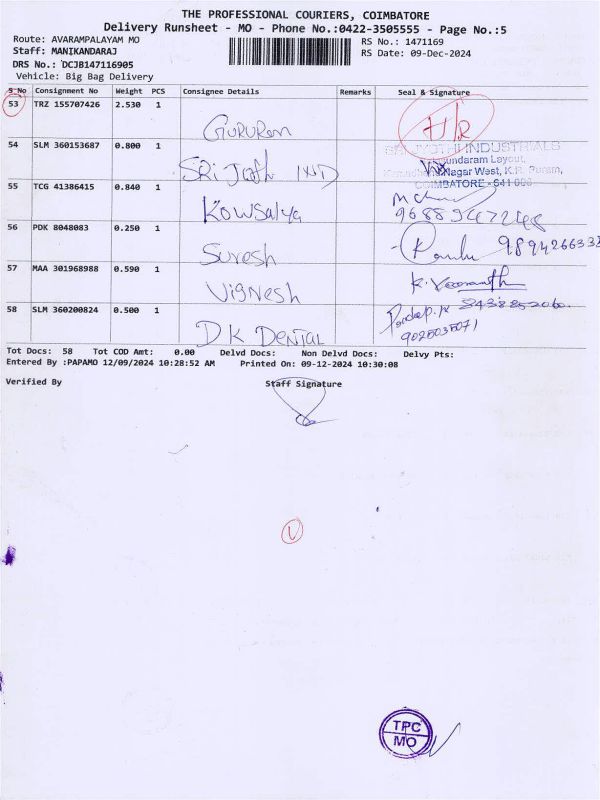 THE PROFESSIONAL COURIERS, COIMBATORE
Delivery Runsheet - MO - Phone No.:0422-3505555 - Page No.:5
Route: AVARAMPALAYAM MO
RS No.: 1471169
Staff: MANIKANDARAJ
RS Date: 09-Dec-2024
DRS No.: DCJB147116905
Vehicle: Big Bag Delivery
S No Consignment No Weight PCS Consignee Details Remarks Seal & Signature
53 TRZ 155707426 2.530 1
GURURam H/R
54 SLM 360153687 0.800 1
SRI JYOTHI INDUSTRIALS
Layout,
SRi Jyoth IND Nagar West, K.R. Puram,
COIMBATORE - 641 006
55 TCG 41386415 0.840 1
Kowsalya 9688947248
56 PDK 8048083 0.250 1
Suresh 9894266333
57 MAA 301968988 0.590 1
Vignesh
58 SLM 360200824 0.500 1
DK DENTAL 9025035071
Tot Docs: 58 Tot COD Amt: 0.00 Delvd Docs: Non Delvd Docs: Delvy Pts:
Entered By :PAPAMO 12/09/2024 10:28:52 AM Printed On: 09-12-2024 10:30:08
Verified By Staff Signature
TPC
MO